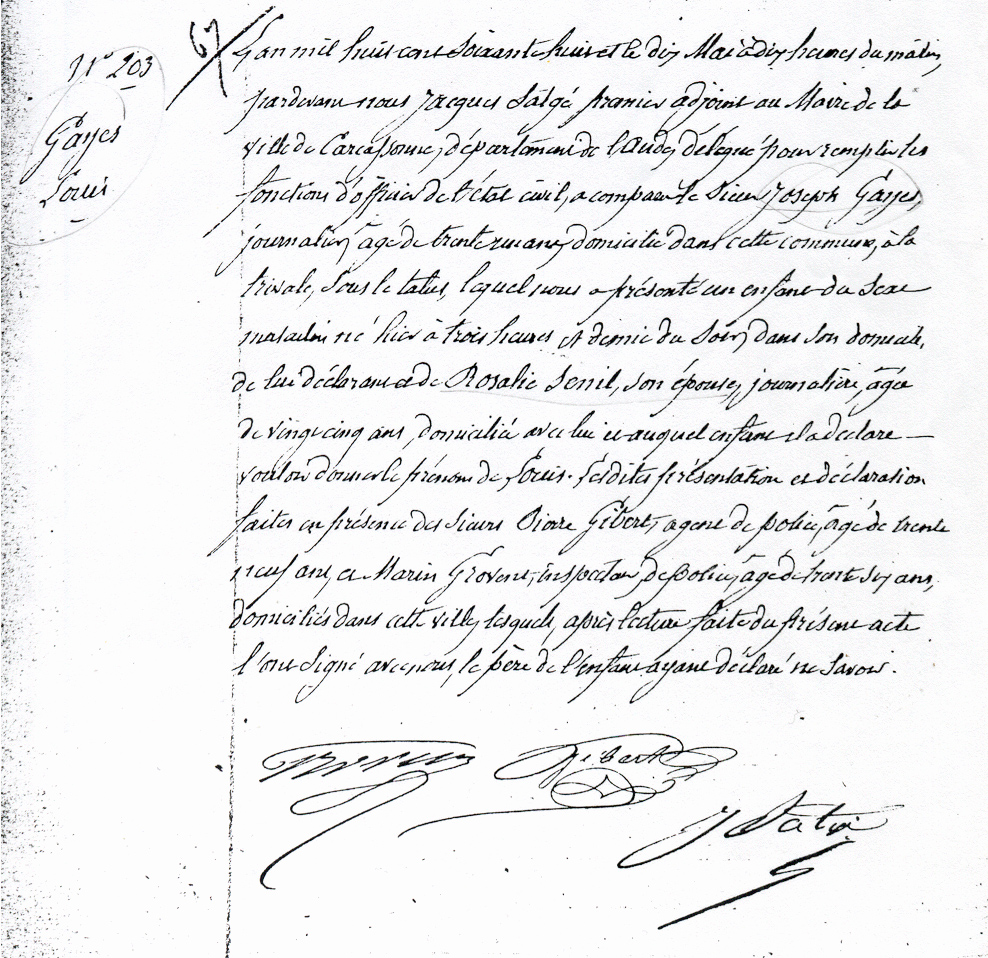 67
N° 203
Gayes
Louis
L'an mil huit cent soixante huit et le dix Mai à dix heures du matin,
pardevant nous Jacques Salgé premier adjoint au Maire de la
ville de Carcassonne, département de l'Aude, délégué pour remplir les
fonctions d'officier de l'état civil, a comparu le Sieur Joseph Gayes,
journalier, âgé de trente un ans, domicilié dans cette commune, à la
trivale, sous le talus, lequel nous a présenté un enfant du sexe
masculin né hier à trois heures et demie du soir, dans son domicile,
de lui déclarant et de Rosalie Senil, son épouse, journalière, âgée
de vingt cinq ans, domiciliée avec lui et auquel enfant il a déclaré —
vouloir donner le prénom de Louis. Lesdites présentation et déclaration
faites en présence des sieurs Pierre Gibert, agent de police, âgé de trente
neuf ans, et Marin Grovent, inspecteur de police, âgé de trente six ans,
domiciliés dans cette ville, lesquels, après lecture faite du présent acte
l'ont signé avec nous, le père de l'enfant ayant déclaré ne savoir.
Gibert